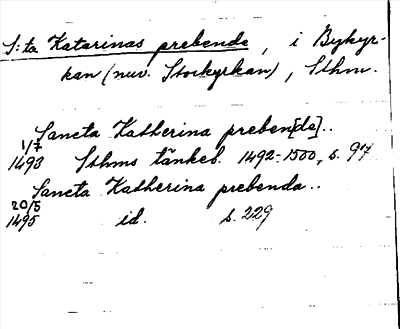 S:ta Katarinas prebende, i Bykyr-
kan (nuv. Storkyrkan), Sthm.
Sancta Katherina preben[de]..
1/7
1493 Sthms tänkeb. 1492-1500, s. 97
Sancta Katherina prebenda..
20/5
1495 id. s. 229